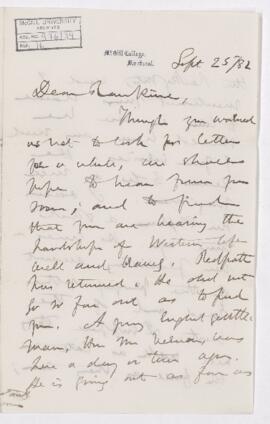 McGILL UNIVERSITY
ARCHIVES
ACC. NO.
REF.
McGill College,
Montreal.
Sept 25/82
Dear Rankine,
Though you warned
us not to look for letters
for a while, we shall
hope to hear from you
soon; and to find
that you are bearing the
hardships of Western life
well and bravely. Redpath
has returned. He did not
go so far out as to find
you. A young English gentle-
man, Hon Mr Vernon, was
here a day or two ago.
He is going out as far as